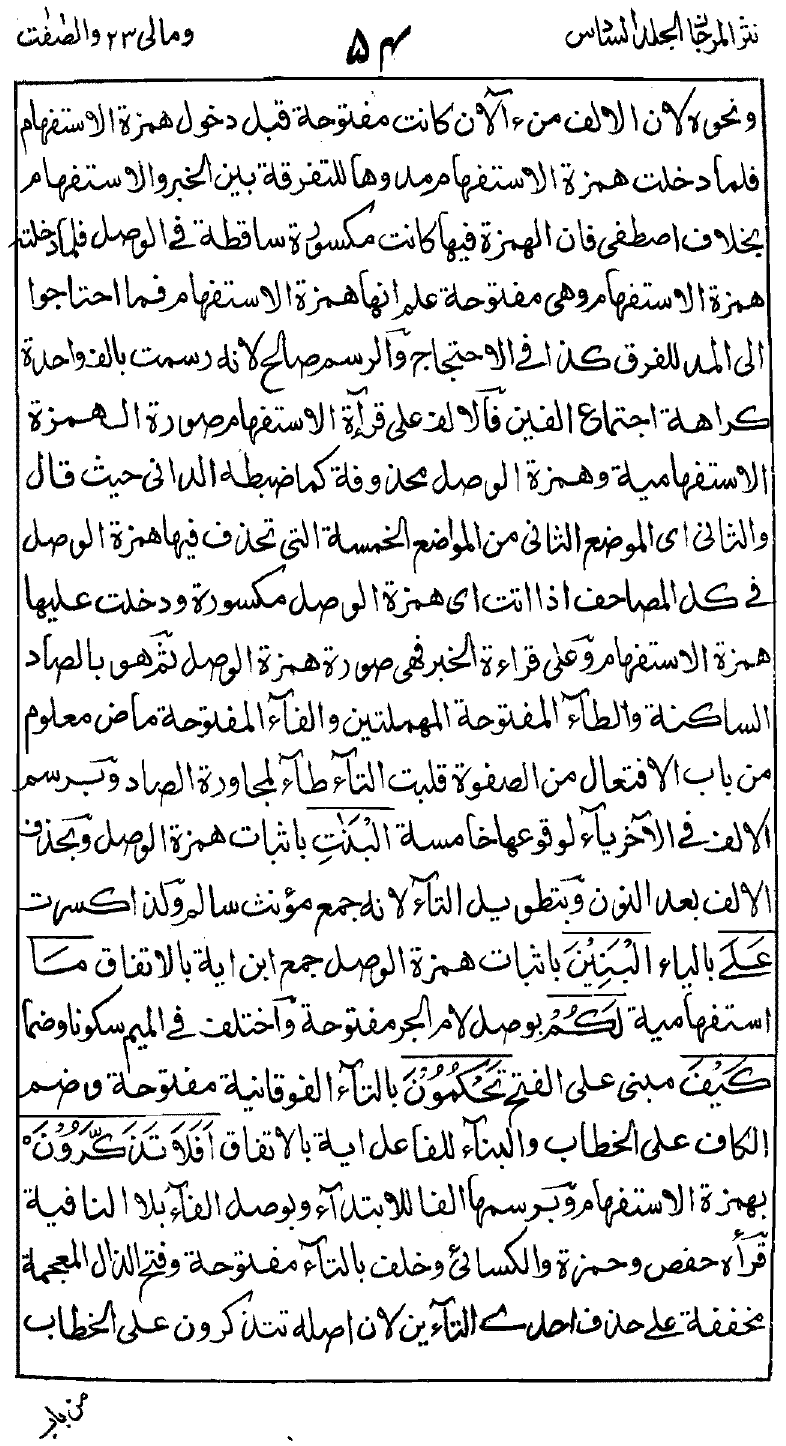 نثر المرجان المجلد السادس ۵۴ ومالی ۲۳ والصّٰفّٰت
ونحوه لان الالف من ءآلآن كانت مفتوحة قبل دخول همزة الاستفهام
فلما دخلت همزة الاستفهام مدوها للتفرقة بين الخبر والاستفهام
بخلاف اصطفى فان الهمزة فيها كانت مكسورة ساقطة فى الوصل فلما دخلت
همزة الاستفهام وهى مفتوحة علم انها همزة الاستفهام فما احتاجوا
الى المد للفرق كذا فى الاحتجاج والرسم صالح لانه رسمت بالف واحدة
كراهة اجتماع الفين فالالف على قرآءة الاستفهام صورة الهمزة
الاستفهامية وهمزة الوصل محذوفة كما ضبطه الدانى حيث قال
والثانى اى الموضع الثانى من المواضع الخمسة التى تحذف فيها همزة الوصل
فى كل المصاحف اذا اتت اى همزة الوصل مكسورة ودخلت عليها
همزة الاستفهام وعلى قراءة الخبر فهى صورة همزة الوصل ثم هو بالصاد
الساكنة والطآء المفتوحة المهملتين والفآء المفتوحة ماض معلوم
من باب الافتعال من الصفوة قلبت التآء طآء لمجاورة الصاد وبرسم
الالف فى الآخر يآء لوقوعها خامسة الْبَنٰتِ باثبات همزة الوصل وبحذف
الالف بعد النون وبتطويل التآء لانه جمع مؤنث سالم ولذا كسرت
عَلَى بالياء الْبَنِيْنَ باثبات همزة الوصل جمع ابن اية بالاتفاق مَا
استفهامية لَكُمْ بوصل لام الجر مفتوحة واختلف فى الميم سكونا وضما
كَيْفَ مبنى على الفتح تَحْكُمُوْنَ بالتآء الفوقانية مفتوحة وضم
الكاف على الخطاب والبنآء للفاعل اية بالاتفاق اَفَلَا تَذَكَّرُوْنَ
بهمزة الاستفهام وبرسمها الفا للابتدآء وبوصل الفآء بلا النافية
قرأه حفص وحمزة والكسائى وخلف بالتآء مفتوحة وفتح الذال المعجمة
مخففة على حذف احدى التآءين لان اصله تتذكرون على الخطاب
من باب